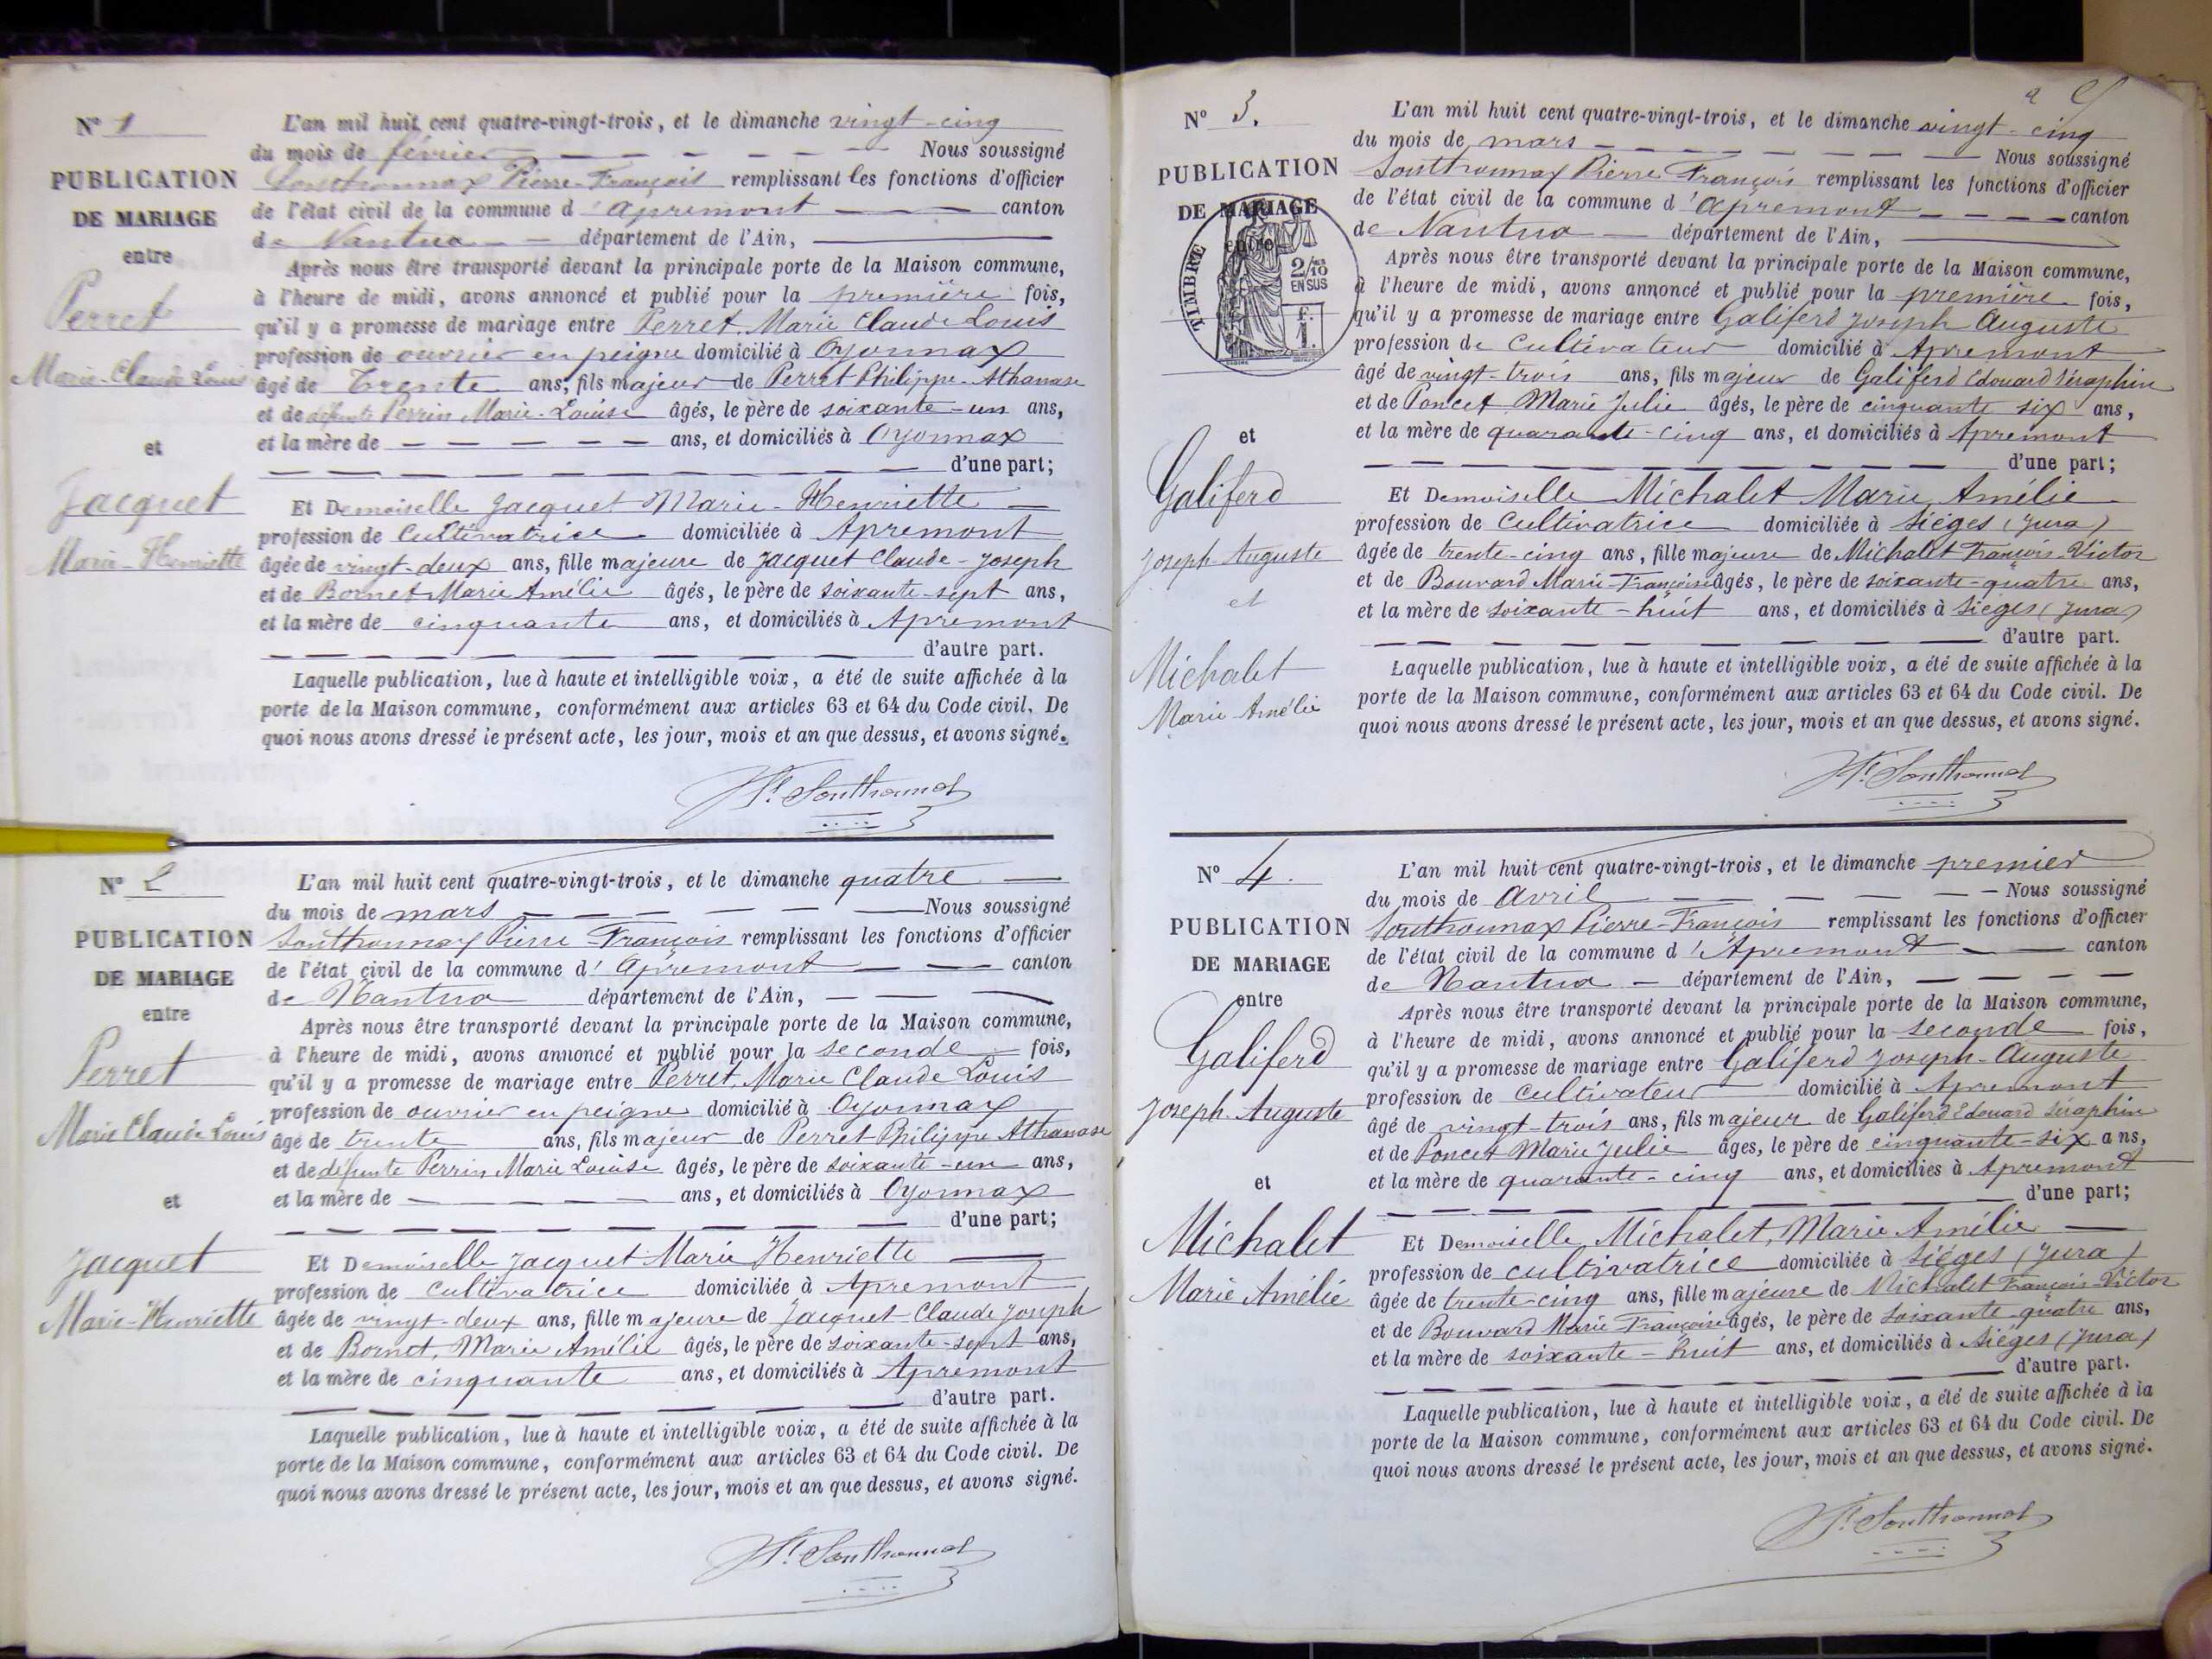 Nº 1
PUBLICATION
DE MARIAGE
entre
Perret
Marie-Claude Louis
et
Jacquet
Marie-Henriette
L'an mil huit cent quatre-vingt-trois, et le dimanche vingt-cinq
du mois de février — — — — — — Nous soussigné
Southonnax Pierre-François remplissant les fonctions d'officier
de l'état civil de la commune d'Apremont — — canton
de Nantua — — département de l'Ain, —
Après nous être transporté devant la principale porte de la Maison commune,
à l'heure de midi, avons annoncé et publié pour la première fois,
qu'il y a promesse de mariage entre Perret, Marie Claude Louis
profession de ouvrier en peigne domicilié à Oyonnax
âgé de Trente ans, fils majeur de Perret Philippe-Athanase
et de défunte Perrin Marie-Louise âgés, le père de soixante-un ans,
et la mère de — — — — — — ans, et domiciliés à Oyonnax
— — — — — — — — d'une part;
Et Demoiselle Jacquet Marie-Henriette —
profession de Cultivatrice domiciliée à Apremont
âgée de vingt-deux ans, fille majeure de Jacquet Claude-Joseph
et de Bornet Marie Amélie âgés, le père de soixante-sept ans,
et la mère de cinquante ans, et domiciliés à Apremont
— — — — — — — — d'autre part.
Laquelle publication, lue à haute et intelligible voix, a été de suite affichée à la
porte de la Maison commune, conformément aux articles 63 et 64 du Code civil. De
quoi nous avons dressé le présent acte, les jour, mois et an que dessus, et avons signé.
Southonnax
Nº 2
PUBLICATION
DE MARIAGE
entre
Perret
Marie Claude Louis
et
Jacquet
Marie-Henriette
L'an mil huit cent quatre-vingt-trois, et le dimanche quatre —
du mois de mars — — — — — — Nous soussigné
Southonnax Pierre-François remplissant les fonctions d'officier
de l'état civil de la commune d'Apremont — — canton
de Nantua département de l'Ain, — — —
Après nous être transporté devant la principale porte de la Maison commune,
à l'heure de midi, avons annoncé et publié pour la seconde fois,
qu'il y a promesse de mariage entre Perret, Marie Claude Louis
profession de ouvrier en peigne domicilié à Oyonnax
âgé de trente ans, fils majeur de Perret Philippe Athanase
et de défunte Perrin Marie Louise âgés, le père de soixante-un ans,
et la mère de — — — — — ans, et domiciliés à Oyonnax
— — — — — — — — d'une part;
Et Demoiselle Jacquet Marie Henriette —
profession de cultivatrice domiciliée à Apremont
âgée de vingt-deux ans, fille majeure de Jacquet Claude Joseph
et de Bornet, Marie Amélie âgés, le père de soixante-sept ans,
et la mère de cinquante ans, et domiciliés à Apremont
— — — — — — — — d'autre part.
Laquelle publication, lue à haute et intelligible voix, a été de suite affichée à la
porte de la Maison commune, conformément aux articles 63 et 64 du Code civil. De
quoi nous avons dressé le présent acte, les jour, mois et an que dessus, et avons signé.
Southonnax
Nº 3.
PUBLICATION
DE MARIAGE
entre
TIMBRE
2/10
EN SUS
F.
1.
et
Galiferd
Joseph Auguste
et
Michalet
Marie Amélie
L'an mil huit cent quatre-vingt-trois, et le dimanche vingt-cinq
du mois de mars — — — — — — Nous soussigné
Southonnax Pierre François remplissant les fonctions d'officier
de l'état civil de la commune d'Apremont — — — — canton
de Nantua — département de l'Ain, —
Après nous être transporté devant la principale porte de la Maison commune,
à l'heure de midi, avons annoncé et publié pour la première fois,
qu'il y a promesse de mariage entre Galiferd Joseph Auguste
profession de Cultivateur domicilié à Apremont
âgé de vingt-trois ans, fils majeur de Galiferd Edouard Séraphin
et de Poncet Marie Julie âgés, le père de cinquante six ans,
et la mère de quarante-cinq ans, et domiciliés à Apremont
— — — — — — — — d'une part;
Et Demoiselle Michalet Marie Amélie —
profession de Cultivatrice domiciliée à Sièges (Jura)
âgée de trente-cinq ans, fille majeure de Michalet François-Victor
et de Bouvard Marie-Françoise âgés, le père de soixante-quatre ans,
et la mère de soixante-huit ans, et domiciliés à Sièges (Jura)
— — — — — — — — d'autre part.
Laquelle publication, lue à haute et intelligible voix, a été de suite affichée à la
porte de la Maison commune, conformément aux articles 63 et 64 du Code civil. De
quoi nous avons dressé le présent acte, les jour, mois et an que dessus, et avons signé.
Southonnax
Nº 4.
PUBLICATION
DE MARIAGE
entre
Galiferd
Joseph-Auguste
et
Michalet
Marie Amélie
L'an mil huit cent quatre-vingt-trois, et le dimanche premier
du mois de Avril — — — — — Nous soussigné
Southonnax Pierre-François remplissant les fonctions d'officier
de l'état civil de la commune d'Apremont — — canton
de Nantua — département de l'Ain, — — — —
Après nous être transporté devant la principale porte de la Maison commune,
à l'heure de midi, avons annoncé et publié pour la seconde fois,
qu'il y a promesse de mariage entre Galiferd Joseph-Auguste
profession de cultivateur domicilié à Apremont
âgé de vingt-trois ans, fils majeur de Galiferd Edouard Séraphin
et de Poncet Marie Julie âgés, le père de cinquante-six ans,
et la mère de quarante-cinq ans, et domiciliés à Apremont
— — — — — — — — d'une part;
Et Demoiselle Michalet, Marie Amélie —
profession de cultivatrice domiciliée à Sièges (Jura)
âgée de trente-cinq ans, fille majeure de Michalet François-Victor
et de Bouvard Marie Françoise âgés, le père de soixante quatre ans,
et la mère de soixante-huit ans, et domiciliés à Sièges (Jura)
— — — — — — — — d'autre part.
Laquelle publication, lue à haute et intelligible voix, a été de suite affichée à la
porte de la Maison commune, conformément aux articles 63 et 64 du Code civil. De
quoi nous avons dressé le présent acte, les jour, mois et an que dessus, et avons signé.
Southonnax